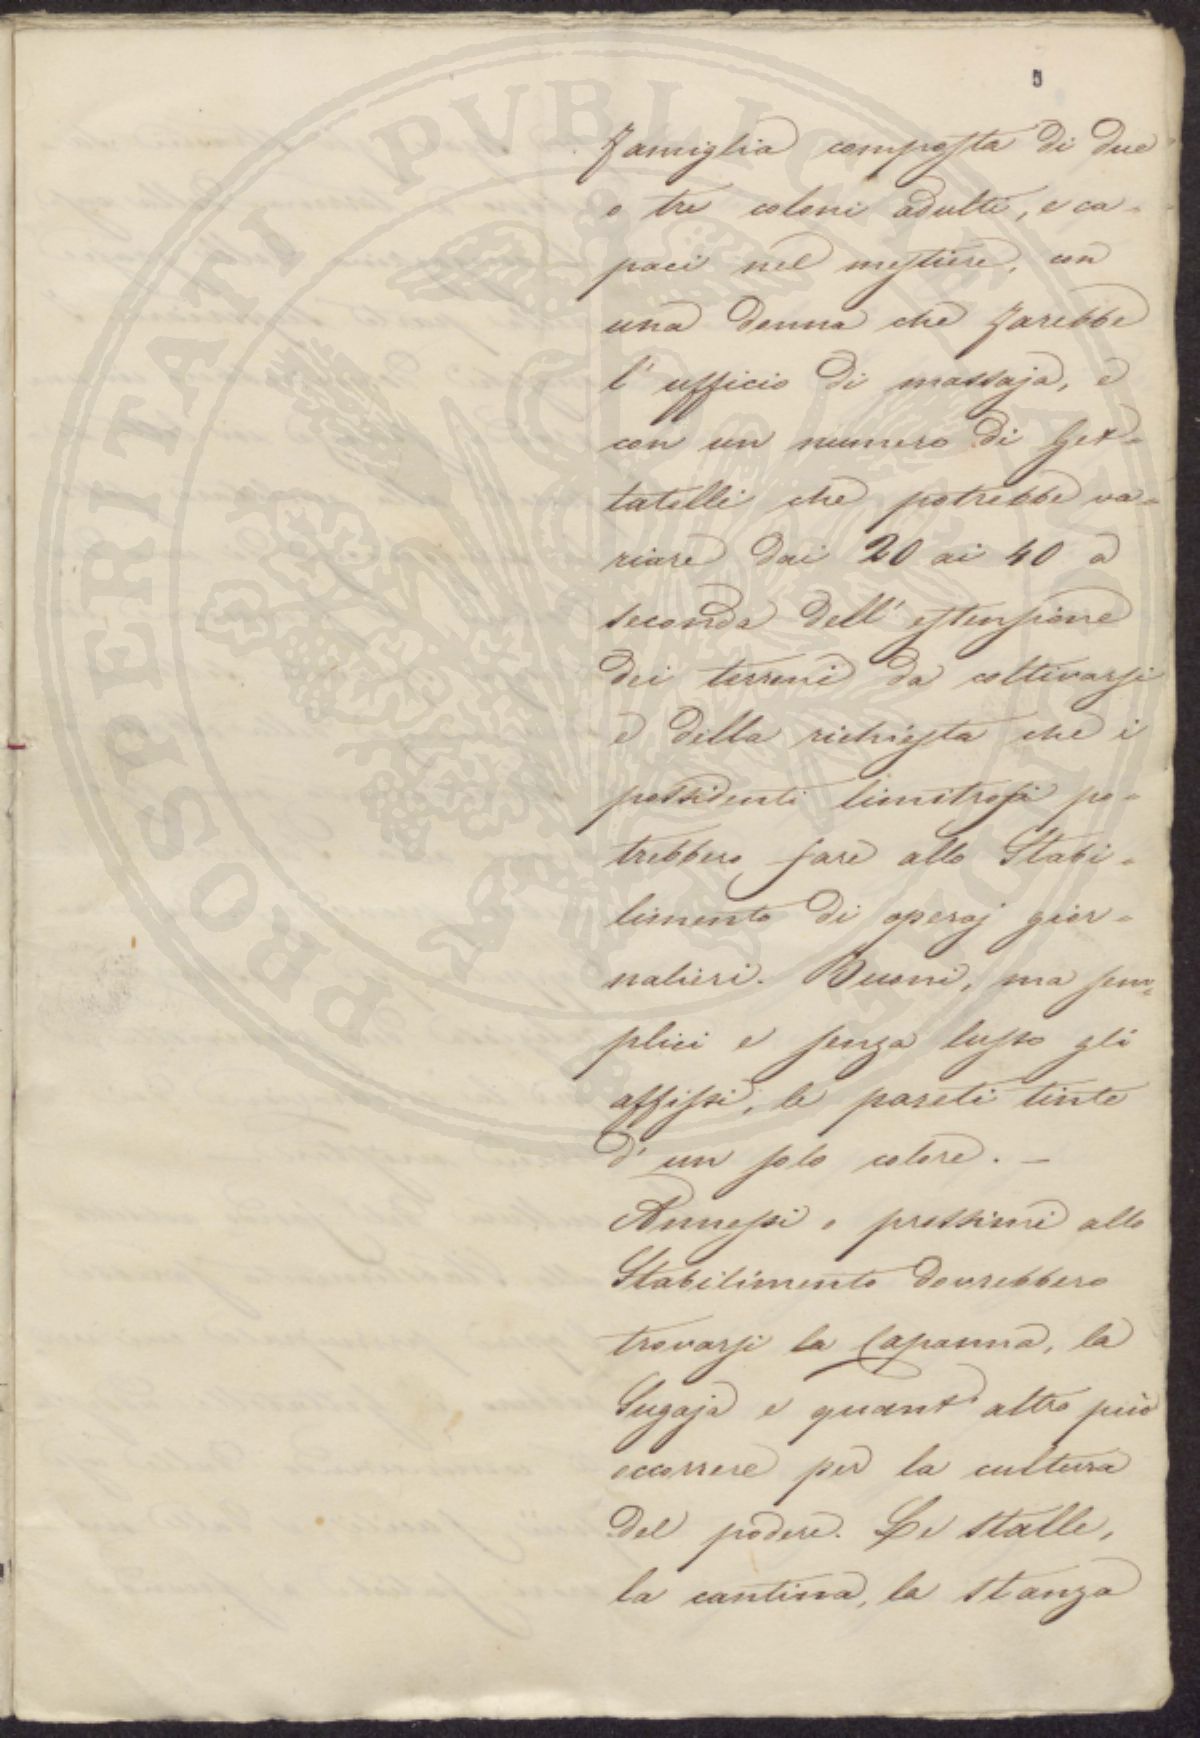 5
famiglia composta di due
o tre coloni adulti, e ca-
paci nel mestiere, con
una donna che farebbe
l'ufficio di massaja, e
con un numero di Get-
tatelli che potrebbe va-
riare dai 20 ai 40 a
seconda dell'estensione
dei terreni da coltivarsi
e della richiesta che i
possidenti limitrofi po-
trebbero fare allo Stabi-
limento di operaj gior-
nalieri. Buoni, ma sem-
plici e senza lusso gli
affissi, le pareti tinte
d'un solo colore. –
Annessi o prossimi allo
Stabilimento dovrebbero
trovarsi la Capanna, la
Sugaja e quant'altro può
occorrere per la cultura
del podere. Le stalle,
la cantina, la stanza
PROSPERITATI PVBLICAE AVGENDAE